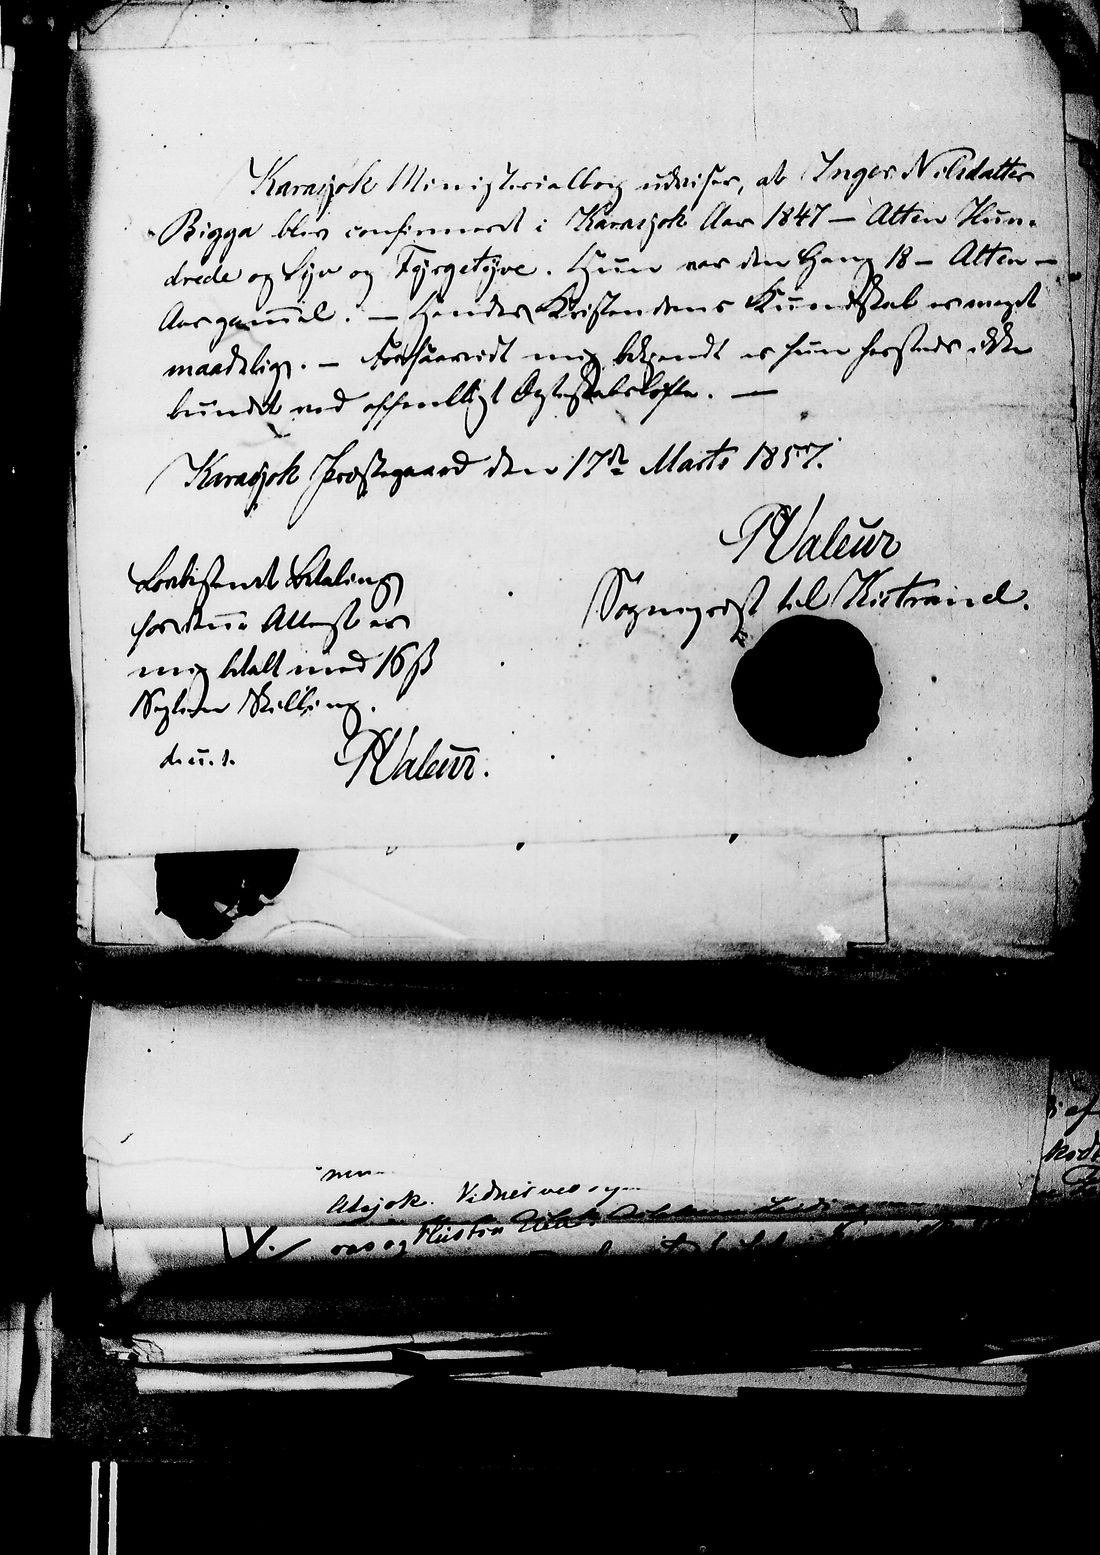 Karasjok Ministerialbog udviser, at Inger Nilsdatter
Bigga blev confirmeret i Karasjok Aar 1847 – Atten Hun-
drede og Syv og Fyrgetyve. Hun var den Gang 18 – Atten –
Aar gammel. – Hendes Kristendoms Kundskab er meget
maadelig. – Forsaavidt mig bekjendt er hun hersteds ikke
bundet ved offentligt Ægteskabsløfte. –
Karasjok Præstegaard den 17de Marts 1857.
PValeur
Sogneprest til Kistrand.
Lovbestemt Betaling
for denne Attest er
mig betalt med 16 ß
Sexten Skilling.
d. u. s.
PValeur.